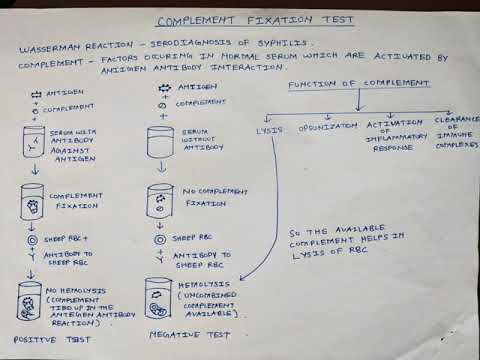 COMPLEMENT FIXATION TEST
WASSERMAN REACTION - SERODIAGNOSIS OF SYPHILIS.
COMPLEMENT - FACTORS OCURING IN NORMAL SERUM WHICH ARE ACTIVATED BY
ANTIGEN ANTIBODY INTERACTION.
ANTIGEN
+
COMPLEMENT
+
SERUM WITH
ANTIBODY
AGAINST
ANTIGEN
COMPLEMENT
FIXATION
SHEEP RBC +
+
ANTIBODY TO
SHEEP RBC
NO HEMOLYSIS
(COMPLEMENT
TIED UP IN THE
ANTIGEN ANTIBODY
REACTION).
POSITIVE TEST
ANTIGEN
+
COMPLEMENT
+
SERUM
WITHOUT
ANTIBODY.
NO COMPLEMENT
FIXATION
SHEEP RBC
+
ANTIBODY TO
SHEEP RBC
HEMOLYSIS
(UNCOMBINED
COMPLEMENT
AVAILABLE)
NEGATIVE TEST
FUNCTION OF COMPLEMENT
LYSIS
OPSONIZATION
ACTIVATION
OF
INFLAMMATORY
RESPONSE
CLEARANCE
OF
IMMUNE
COMPLEXES
SO THE AVAILABLE
COMPLEMENT HELPS IN
LYSIS OF RBC